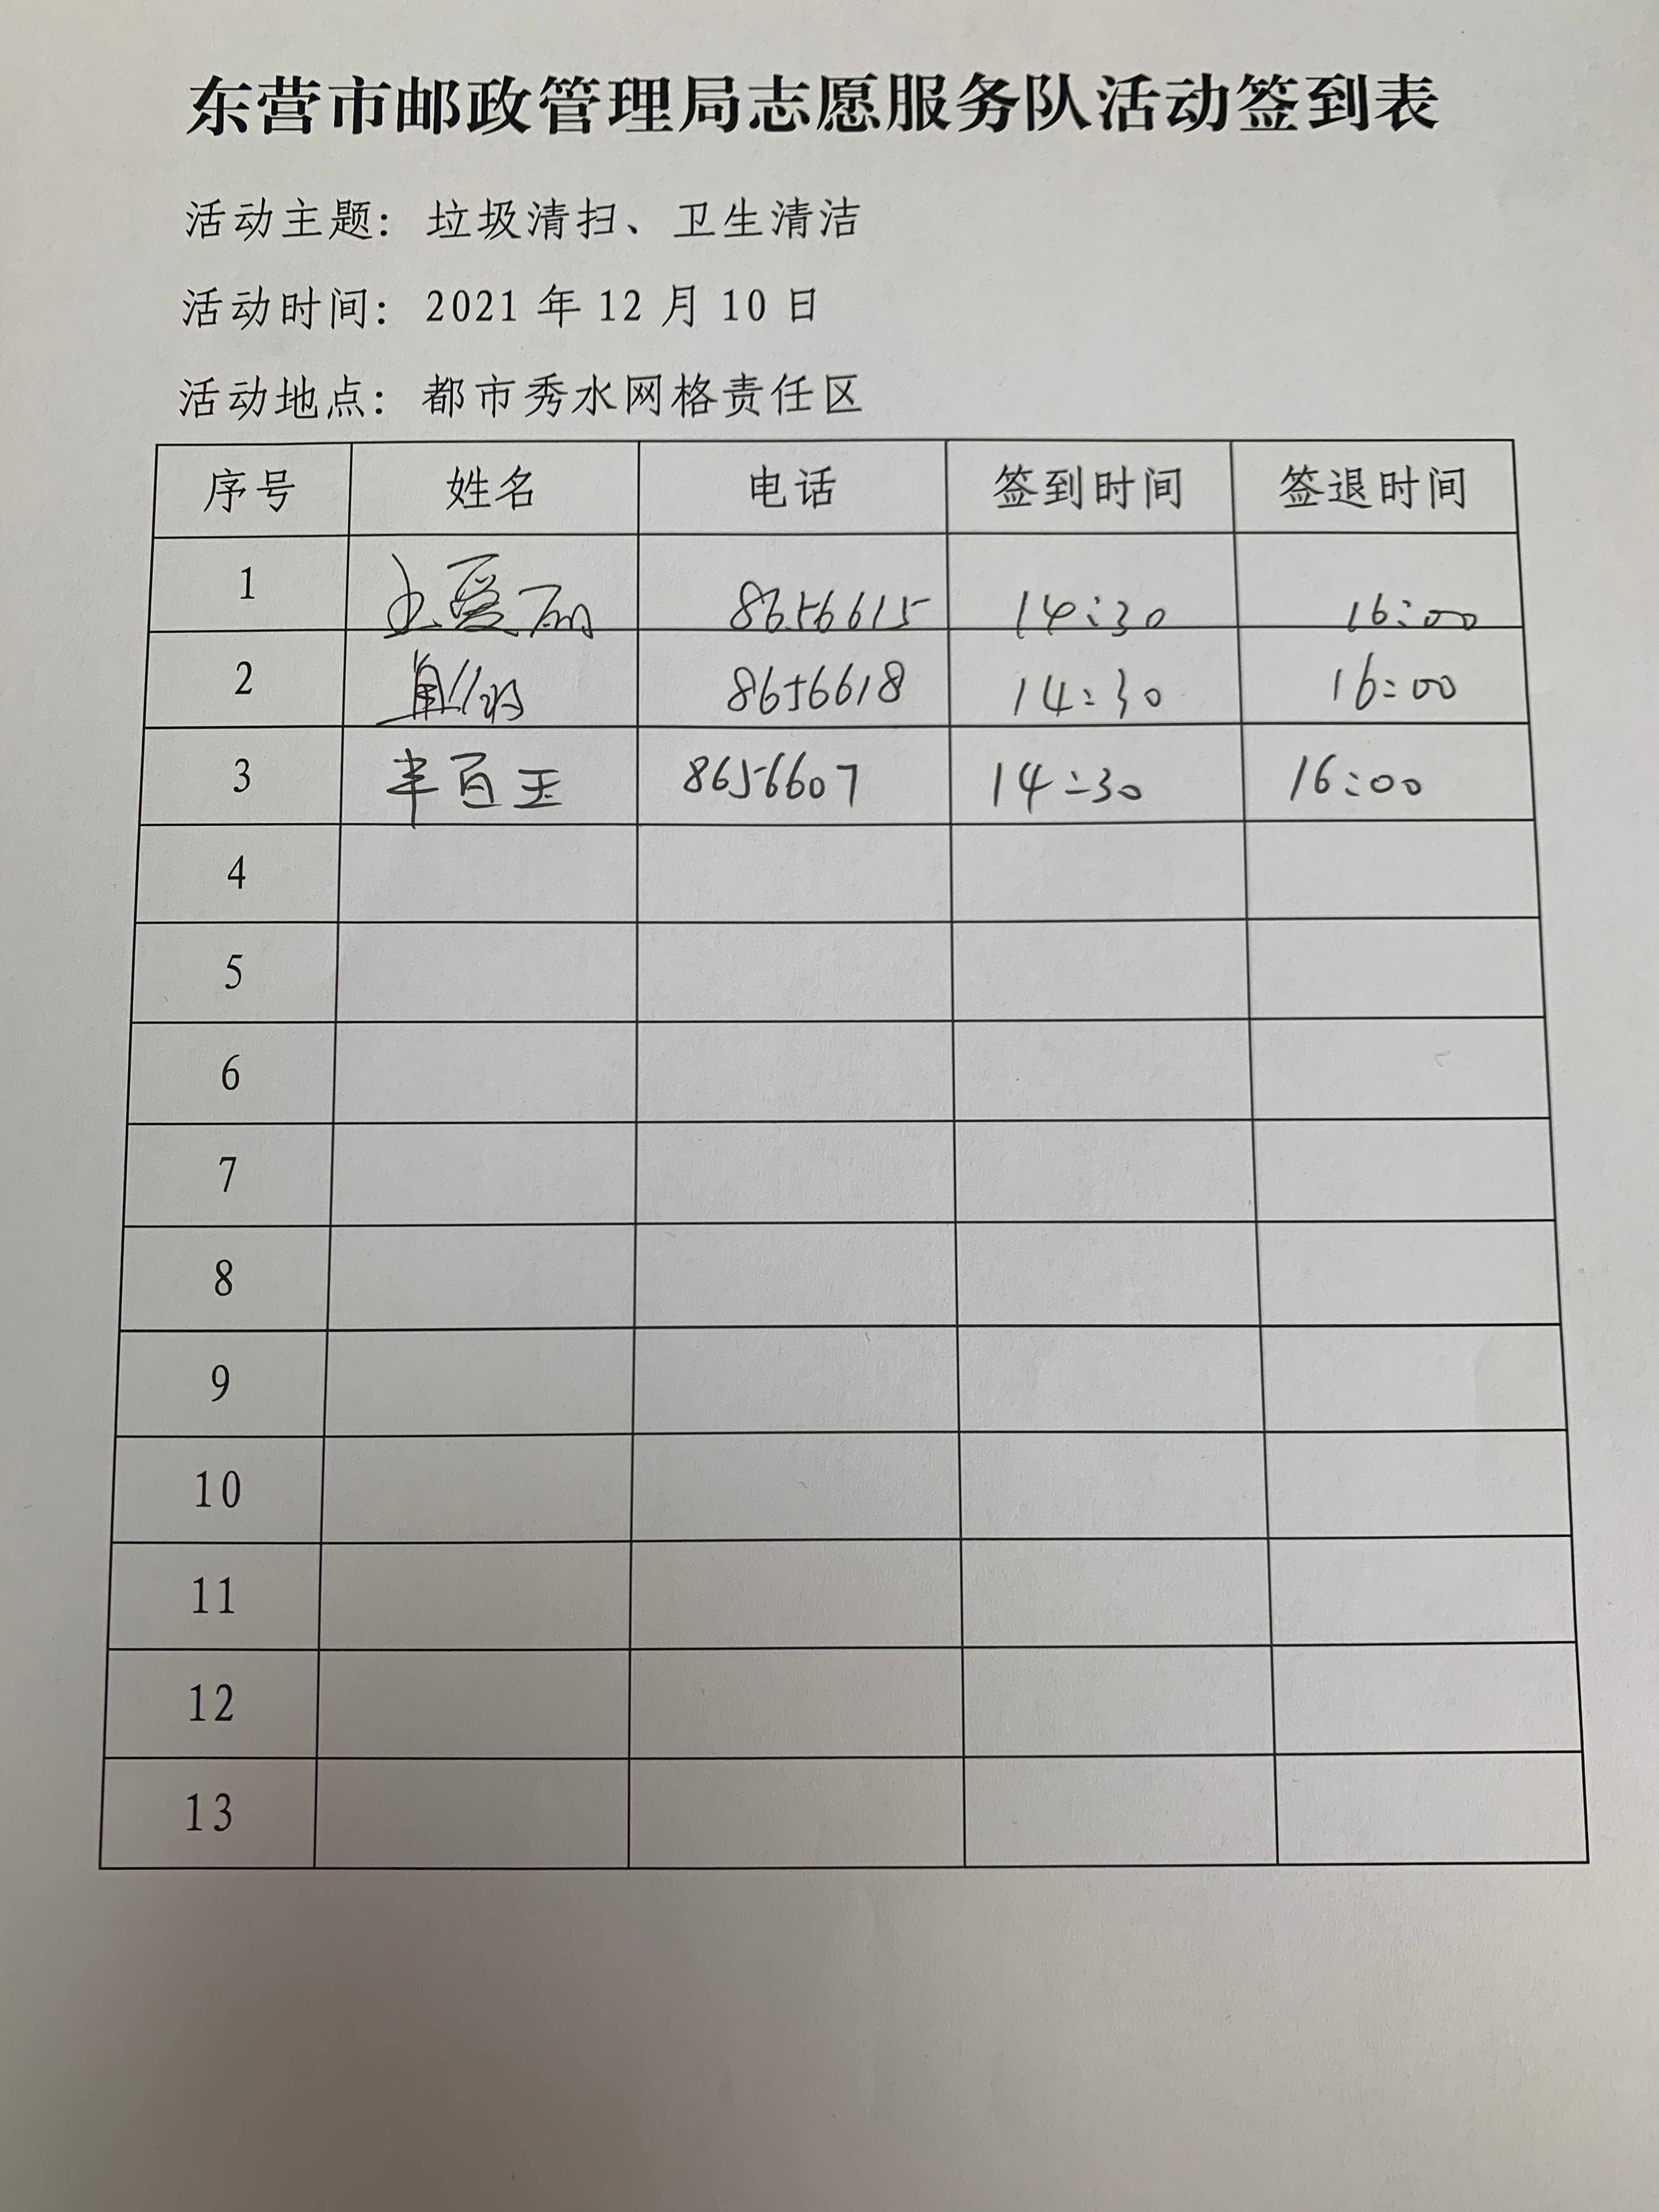 东营市邮政管理局志愿服务队活动签到表
活动主题：垃圾清扫、卫生清洁
活动时间：2021 年 12 月 10 日
活动地点：都市秀水网格责任区
序号 姓名 电话 签到时间 签退时间
1 8656615 14:30 16:00
2 8656618 14:30 16:00
3 8656607 14:30 16:00
4
5
6
7
8
9
10
11
12
13